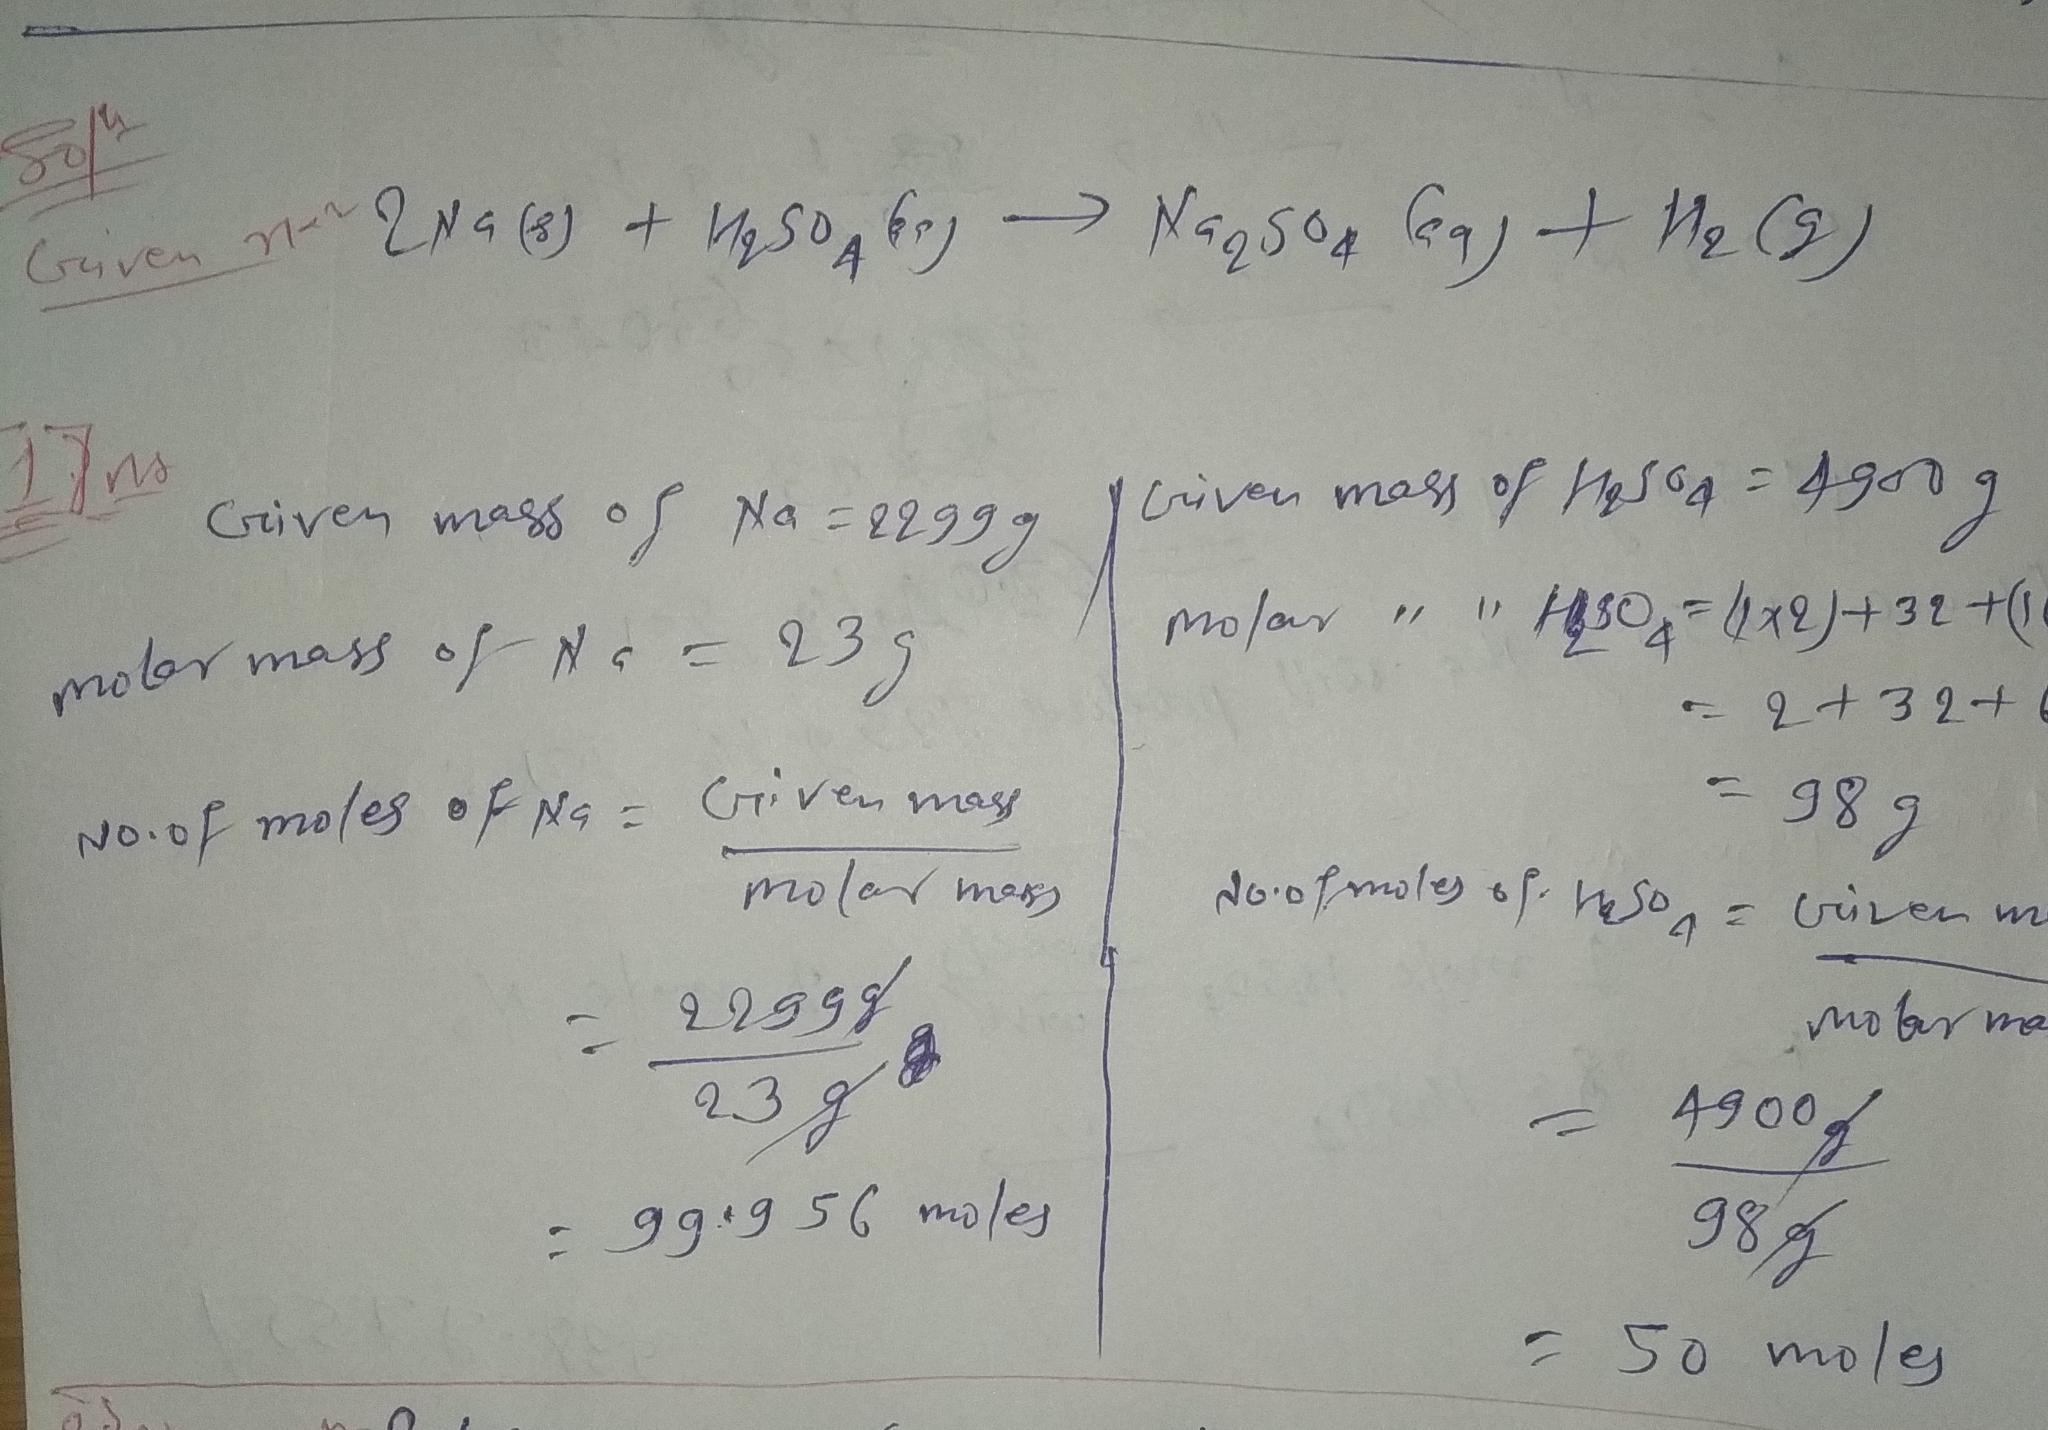 Soln
Given rxn 2Na(s) + H2SO4(aq) → Na2SO4(aq) + H2(g)
1] ns
Given mass of Na = 2299g
molar mass of Na = 23g
No. of moles of Na = Given mass
molar mass
= 2299g
23g
= 99.956 moles
Given mass of H2SO4 = 4900 g
molar " " H2SO4 = (1x2)+32+(1
= 2+32+6
= 98 g
No. of moles of H2SO4 = Given m
molar ma
= 4900g
98g
= 50 moles